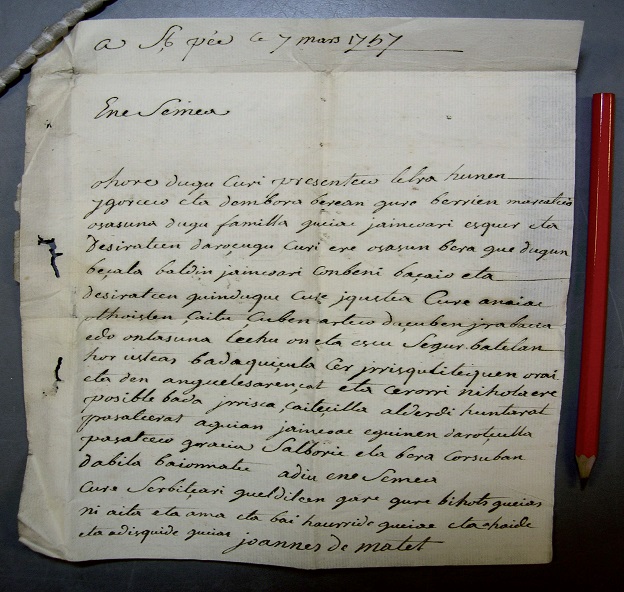 a St pée le 7 mars 1757
Ene Semea
ohore dugu Curi presenteco letra hunen
ygorceco eta dembora berean gure berrien marcatceco
osasuna dugu familla guciac jaincoari esquer eta
Desiratcen daroçugu Curi ere osasun bera guc dugun
beçala baldin jaincoari Conbeni baçaio eta
desiratcen guinduque Cure jqustea Cure anaiac
othoisten çaitu çuben artean ducuben
edo ontasuna lechu on eta escu Segur batetan
hor usteas badaquiçula Cer jrrisqutan orai
eta den anguelesarençat eta cerorri nihola ere
posible bada jrrisca çaitecilla alderdi huntarat
pasatcerat aguian jaincoac eguinen daroçulla
pasatceco gracia Salboric eta bera Corsuban
dabila baionnatic adiu ene Semea
Cure Serbitçari guelditcen gare gure bihots gucias
ni aita eta ama eta bai haurride guciac eta ahaide
eta adisquide guciac joannes de matet